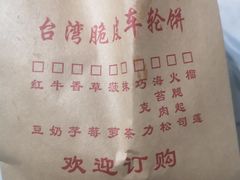 台湾脆皮车轮饼
□□□□□□□□□□
红豆
牛奶
香子
草莓
菠萝
抹茶
巧克力
海苔肉松
火腿起司
榴莲
欢迎订购